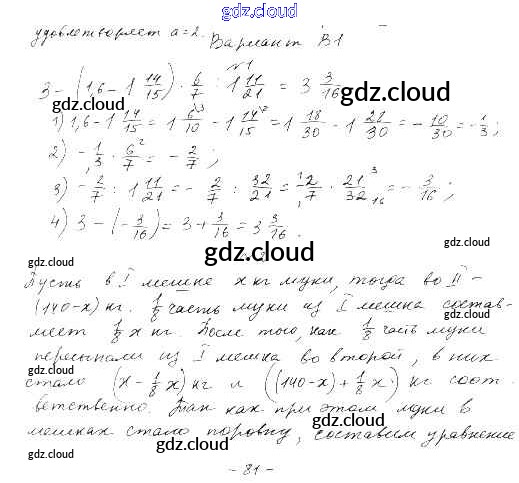 gdz.cloud
удовлетворяет a=2.
Вариант В1
№1
3 - (1,6 - 1 14/15) · 6/7 : 1 11/21 = 3 3/16
gdz.cloud gdz.cloud
1) 1,6 - 1 14/15 = 1 6/10 - 1 14/15 = 1 18/30 - 1 28/30 = - 10/30 = - 1/3;
gdz.cloud
2) - 1/3 · 6/7 = - 2/7;
gdz.cloud gdz.cloud
3) - 2/7 : 1 11/21 = - 2/7 : 32/21 = - 2/7 · 21/32 = - 3/16;
4) 3 - (- 3/16) = 3 + 3/16 = 3 3/16.
gdz.cloud gdz.cloud
gdz.cloud
Пусть в I мешке x кг муки, тогда во II -
(140-x) кг. 1/8 часть муки из I мешка состав-
ляет 1/8 x кг. После того, как 1/8 часть муки
gdz.cloud gdz.cloud
пересыпали из I мешка во второй, в них
стало (x - 1/8 x) кг и ((140-x) + 1/8 x) кг соот-
gdz.cloud gdz.cloud
ветственно. Так как при этом муки в
мешках стало поровну, составим уравнение
gdz.cloud gdz.cloud gdz.cloud
- 81 -